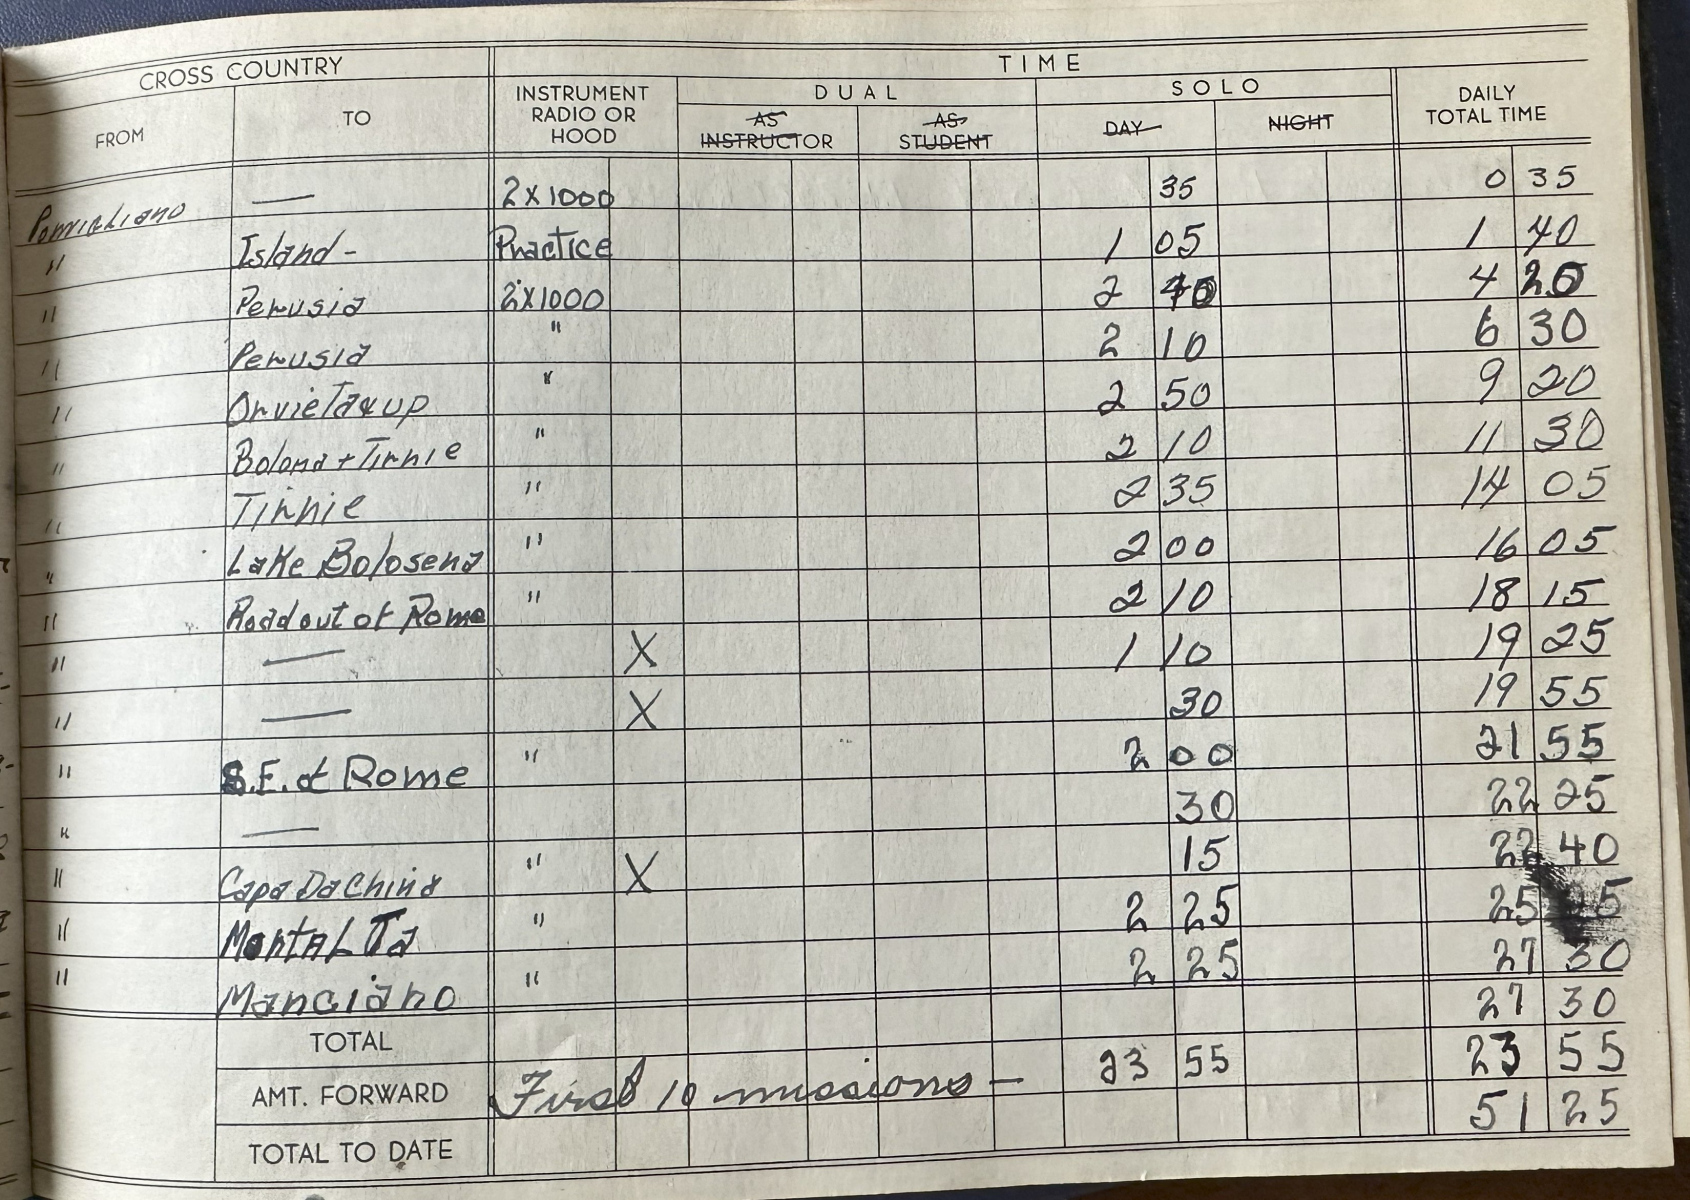 CROSS COUNTRY TIME
FROM TO INSTRUMENT RADIO OR HOOD DUAL SOLO DAILY TOTAL TIME
AS INSTRUCTOR AS STUDENT DAY NIGHT
Pomigliano — 2 x 1000 35 0 35
" Island - Practice 1 05 1 40
" Perusia 2 x 1000 2 40 4 20
" Perusia " 2 10 6 30
" " 2 50 9 20
" Bolona + Tirnie " 2 10 11 30
" Tirnie " 2 35 14 05
" Lake Bolosena " 2 00 16 05
" Road out of Rome " 2 10 18 15
" — X 1 10 19 25
" — X 30 19 55
" S.E. of Rome " 2 00 21 55
" — 30 22 25
" Capa Da China " X 15 22 40
" MontaLTa " 2 25 25
" Manciano " 2 25 27 30
TOTAL 27 30
AMT. FORWARD First 10 missions — 23 55 23 55
TOTAL TO DATE 51 25